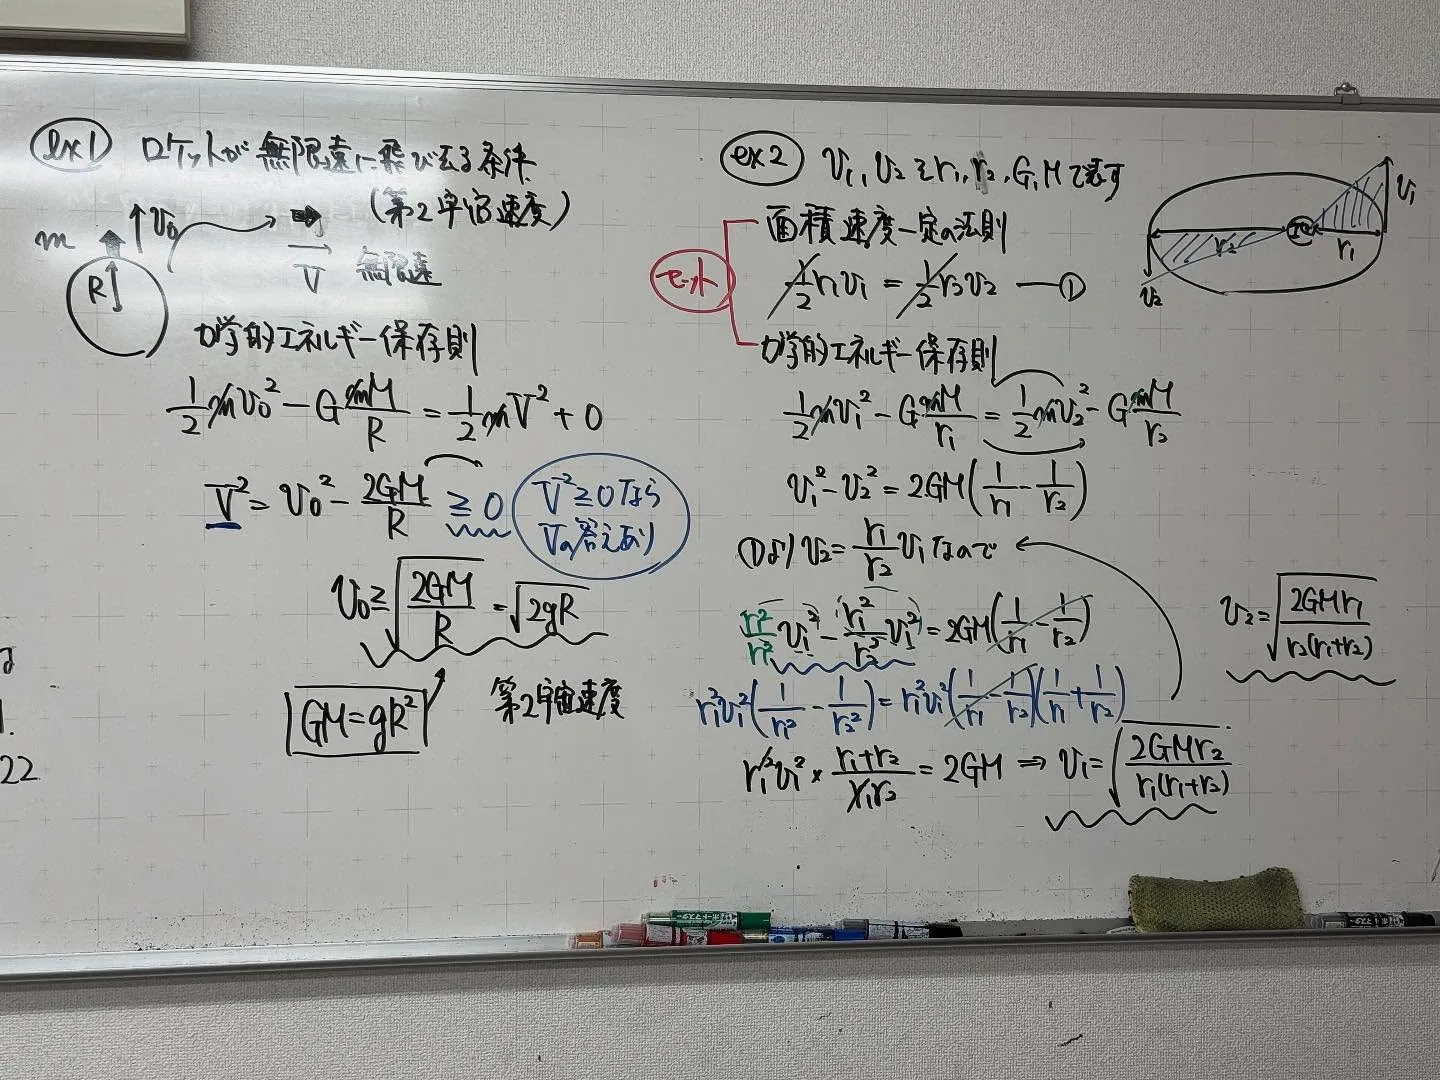 ex1 ロケットが無限遠に飛び去る条件
(第2宇宙速度)
m
v₀
R
V 無限遠
力学的エネルギー保存則
1/2 mv₀² − G mM/R = 1/2 mV² + 0
V² = v₀² − 2GM/R ≧ 0
V²≧0なら
Vの答えあり
v₀ ≧ √(2GM/R) = √(2gR)
GM = gR²
第2宇宙速度
22
ex2 v₁, v₂をr₁, r₂, G, Mで表す
セット
面積速度一定の法則
1/2 r₁v₁ = 1/2 r₂v₂ ― ①
力学的エネルギー保存則
1/2 mv₁² − G mM/r₁ = 1/2 mv₂² − G mM/r₂
v₁² − v₂² = 2GM(1/r₁ − 1/r₂)
①より v₂ = r₁/r₂ v₁ なので
r₁²/r₁² v₁² − r₁²/r₂² v₁² = 2GM(1/r₁ − 1/r₂)
r₁²v₁²(1/r₁² − 1/r₂²) = r₁²v₁²(1/r₁ − 1/r₂)(1/r₁ + 1/r₂)
r₁²v₁² × (r₁+r₂)/(r₁r₂) = 2GM ⇒ v₁ = √(2GMr₂/(r₁(r₁+r₂)))
v₂ = √(2GMr₁/(r₂(r₁+r₂)))
v₁
r₂
r₁
v₂